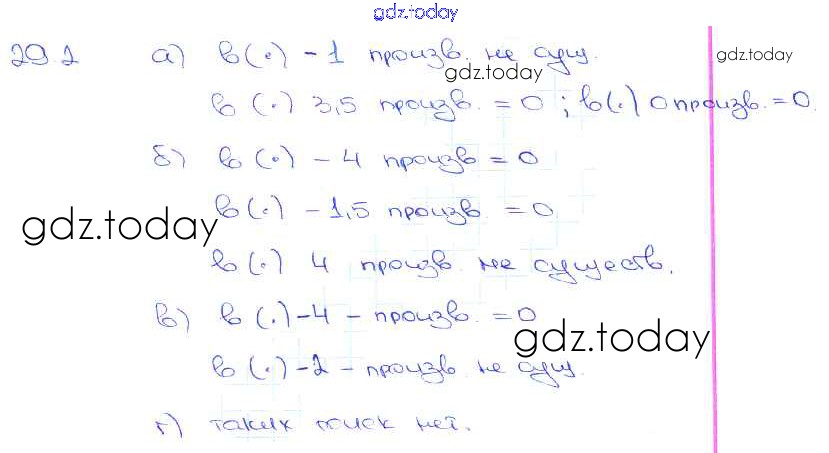 gdz.today
29.2 а) в (·) -1 произв. не сущ. gdz.today
gdz.today
в (·) 3,5 произв. = 0 ; в(·) 0 произв. = 0.
б) в (·) - 4 произв = 0
в (·) -1,5 произв. = 0
gdz.today
в (·) 4 произв. не существ.
в) в (·) -4 - произв. = 0
gdz.today
в (·) -2 - произв. не сущ.
г) таких точек нет.